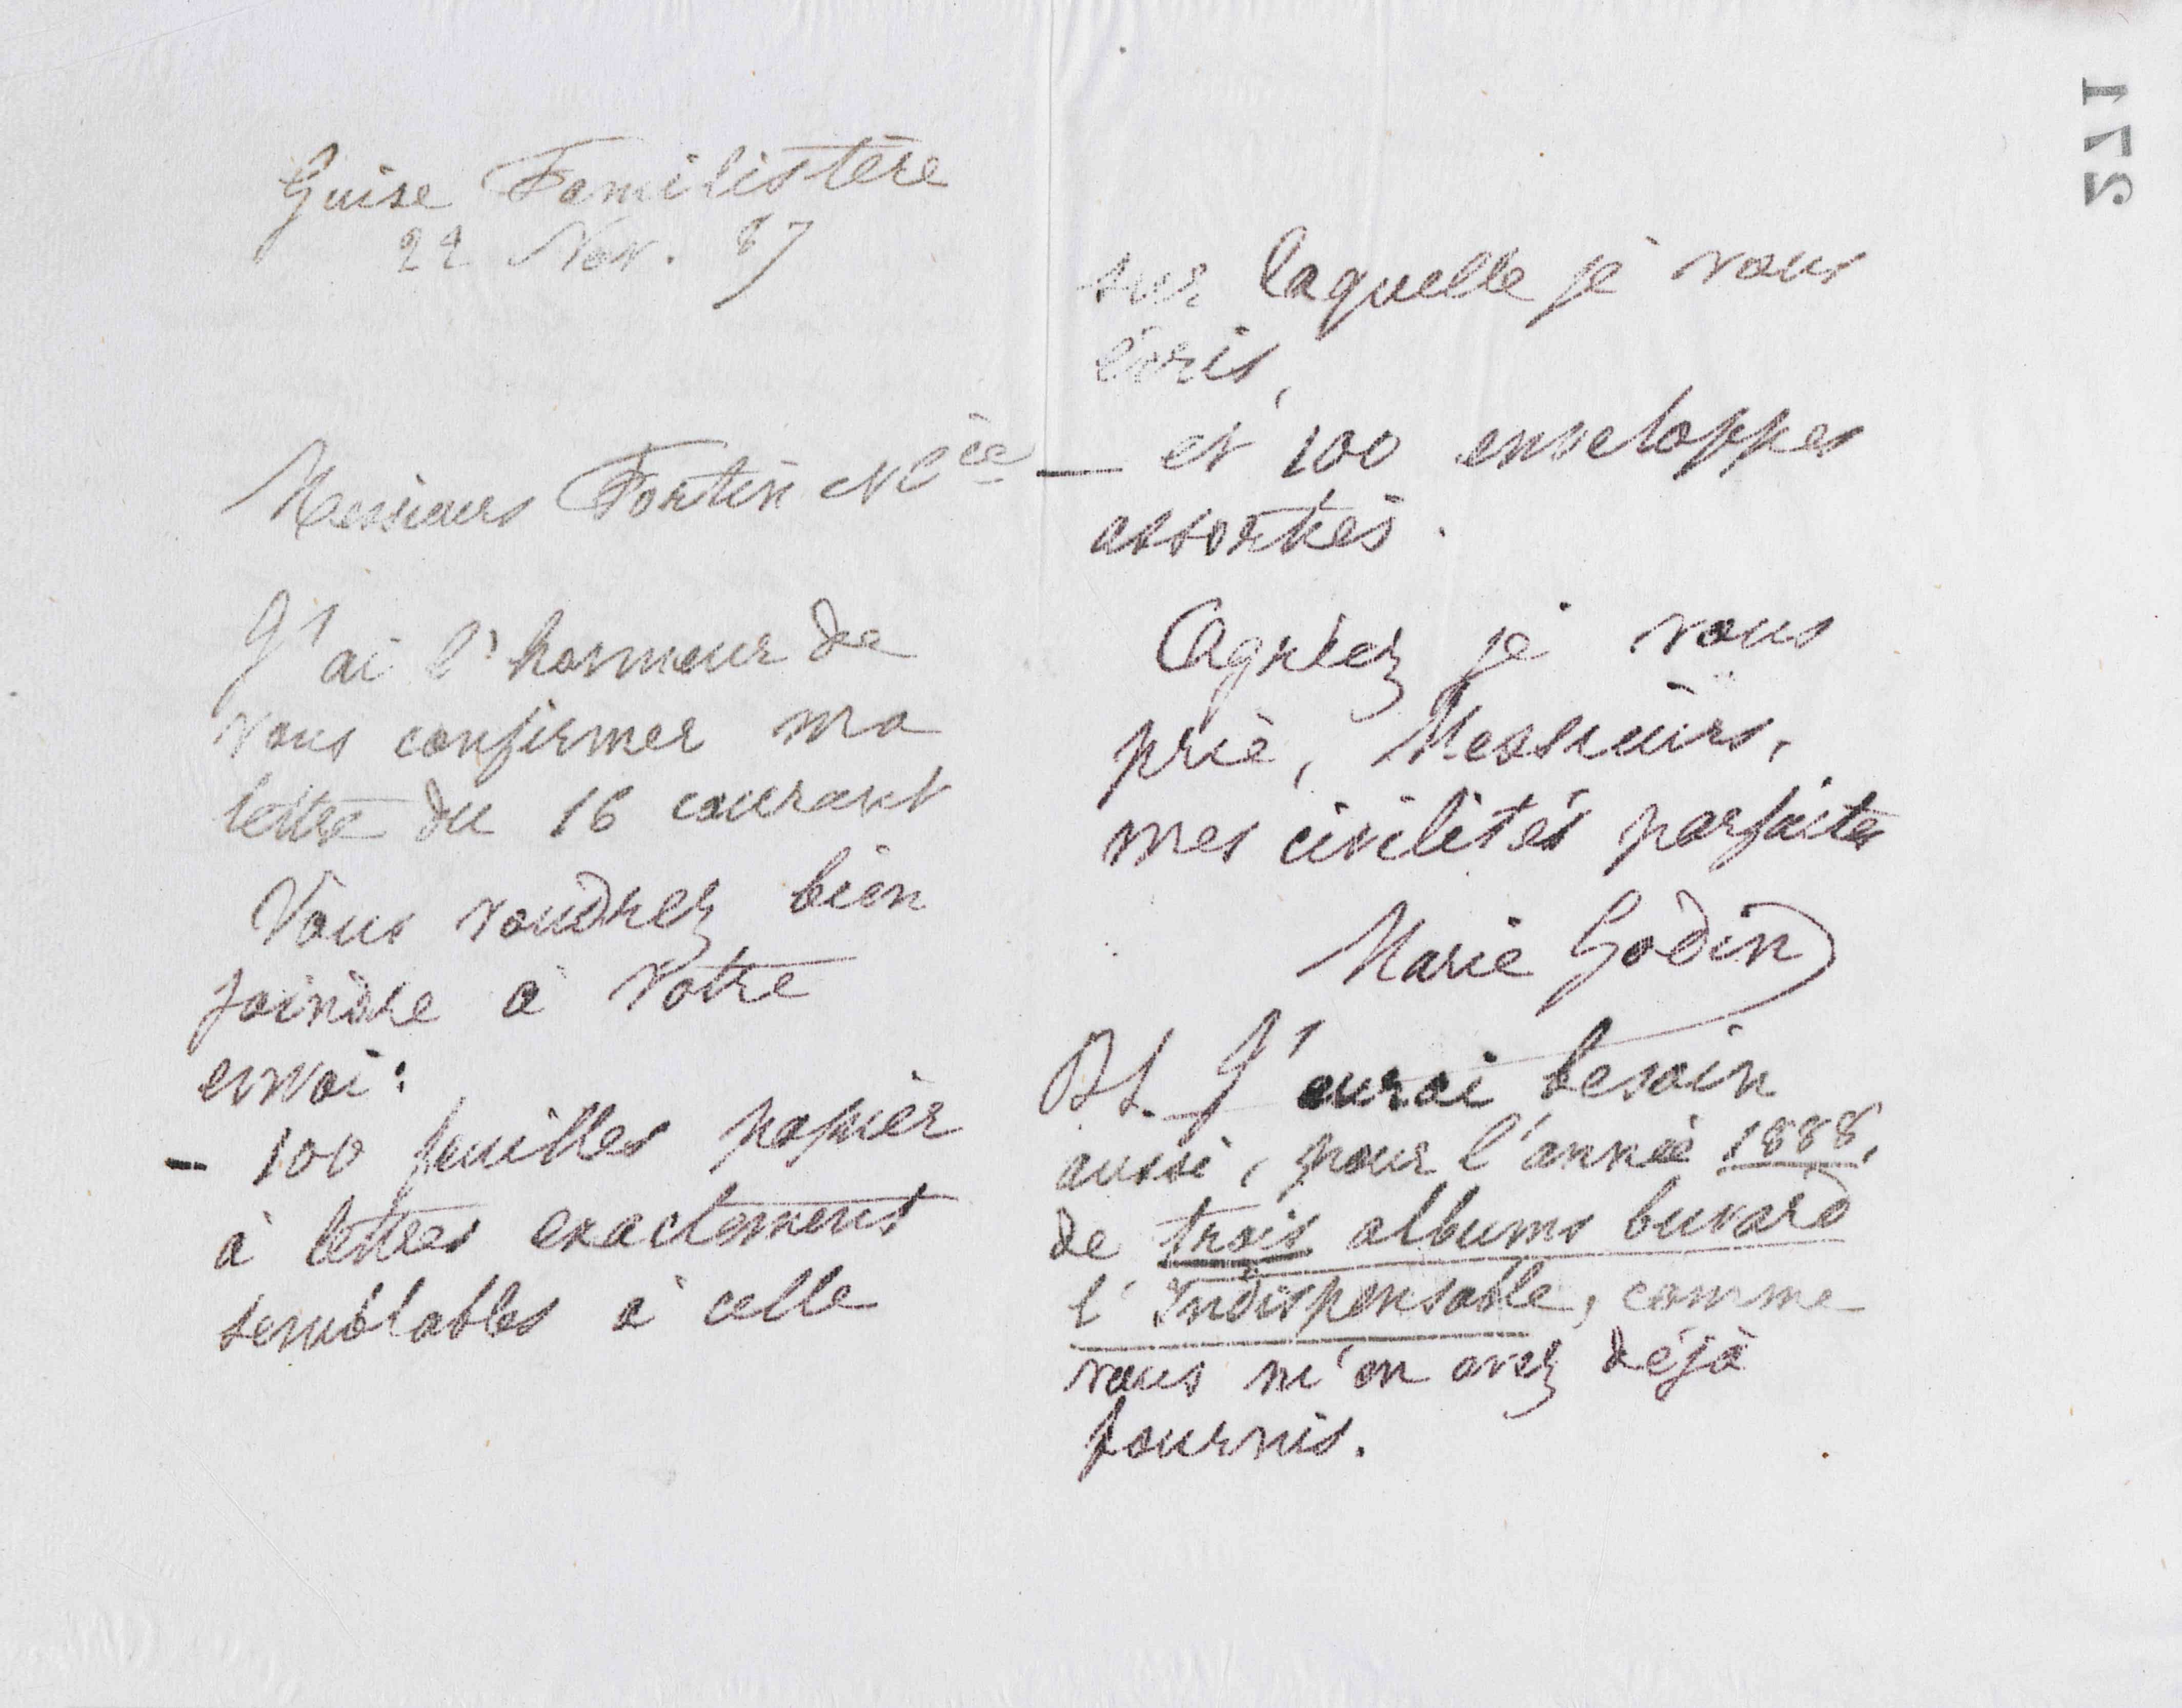 Guise Familistère
22 Nov. 87
Messieurs Fortin & Cie
J'ai l'honneur de
vous confirmer ma
lettre du 16 courant
Vous voudrez bien
joindre à votre
envoi:
- 100 feuilles papier
à lettres exactement
semblables à celle
sur laquelle je vous
écris,
— et 100 enveloppes
assorties.
Agréez je vous
prie, Messieurs,
mes civilités parfaites
Marie Godin
PS. J'aurai besoin
aussi, pour l'année 1888,
de trois albums buvard
l'Indispensable, comme
vous m'en avez déjà
fournis.